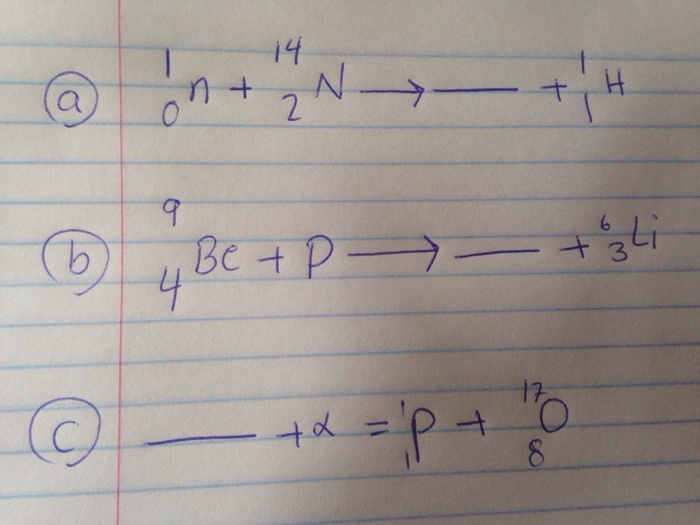 ⓐ ¹₀n + ¹⁴₂N → ___ + ¹₁H
ⓑ ⁹₄Be + P → ___ + ⁶₃Li
ⓒ ___ + α = ¹₁P + ¹⁷₈O